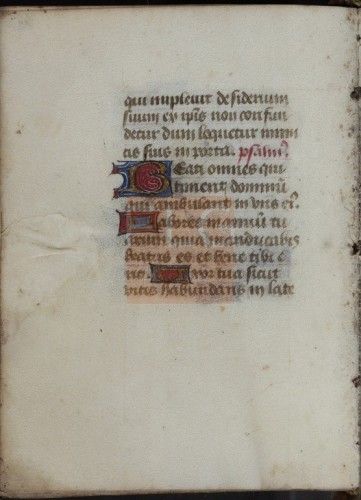 qui impleuit desiderium
suum ex ipsis non confun
detur dum loquetur inimi
cis suis in porta. psalmꝰ
Beati omnes qui
timent dominū
qui ambulant in viis eiꝰ
Labores manuū tu
arum quia manducabis
beatus es et bene tibi e
rit. Uxor tua sicut
vitis habundans in late